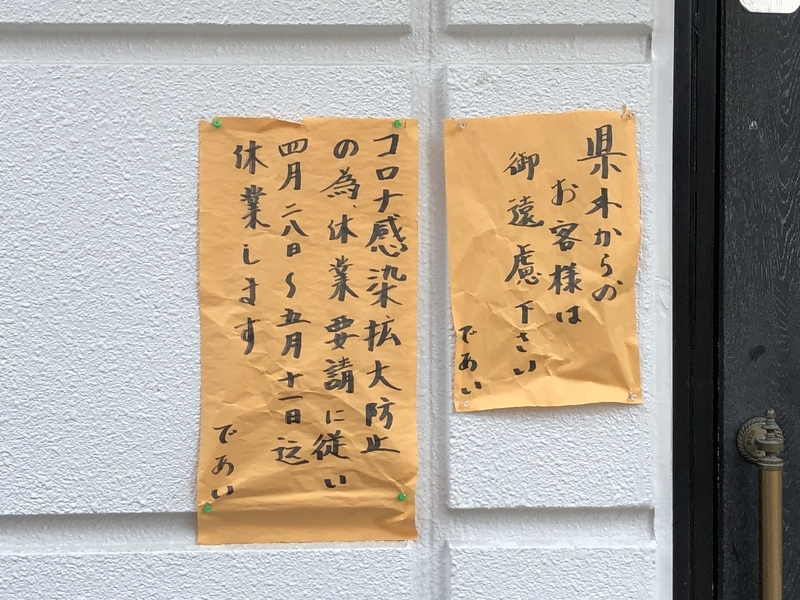 県外からの
お客様は
御遠慮下さい
であい
コロナ感染拡大防止
の為、休業要請に従い
四月二八日〜五月十一日迄
休業します
であい